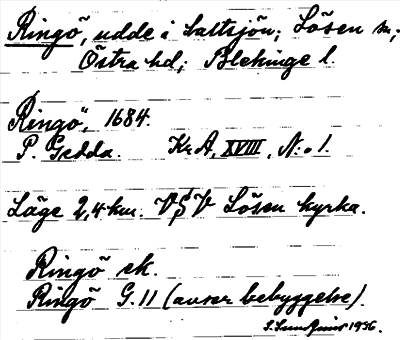 Ringö, udde i saltsjön; Lösen sn;
Östra hd; Blekinge l.
Ringö, 1684.
P. Gedda. Kr A, XVIII, N:o 1.
Läge 2,4 km. VSV Lösen kyrka.
Ringö ek.
Ringö G. 11 (avser bebyggelse).
1936.